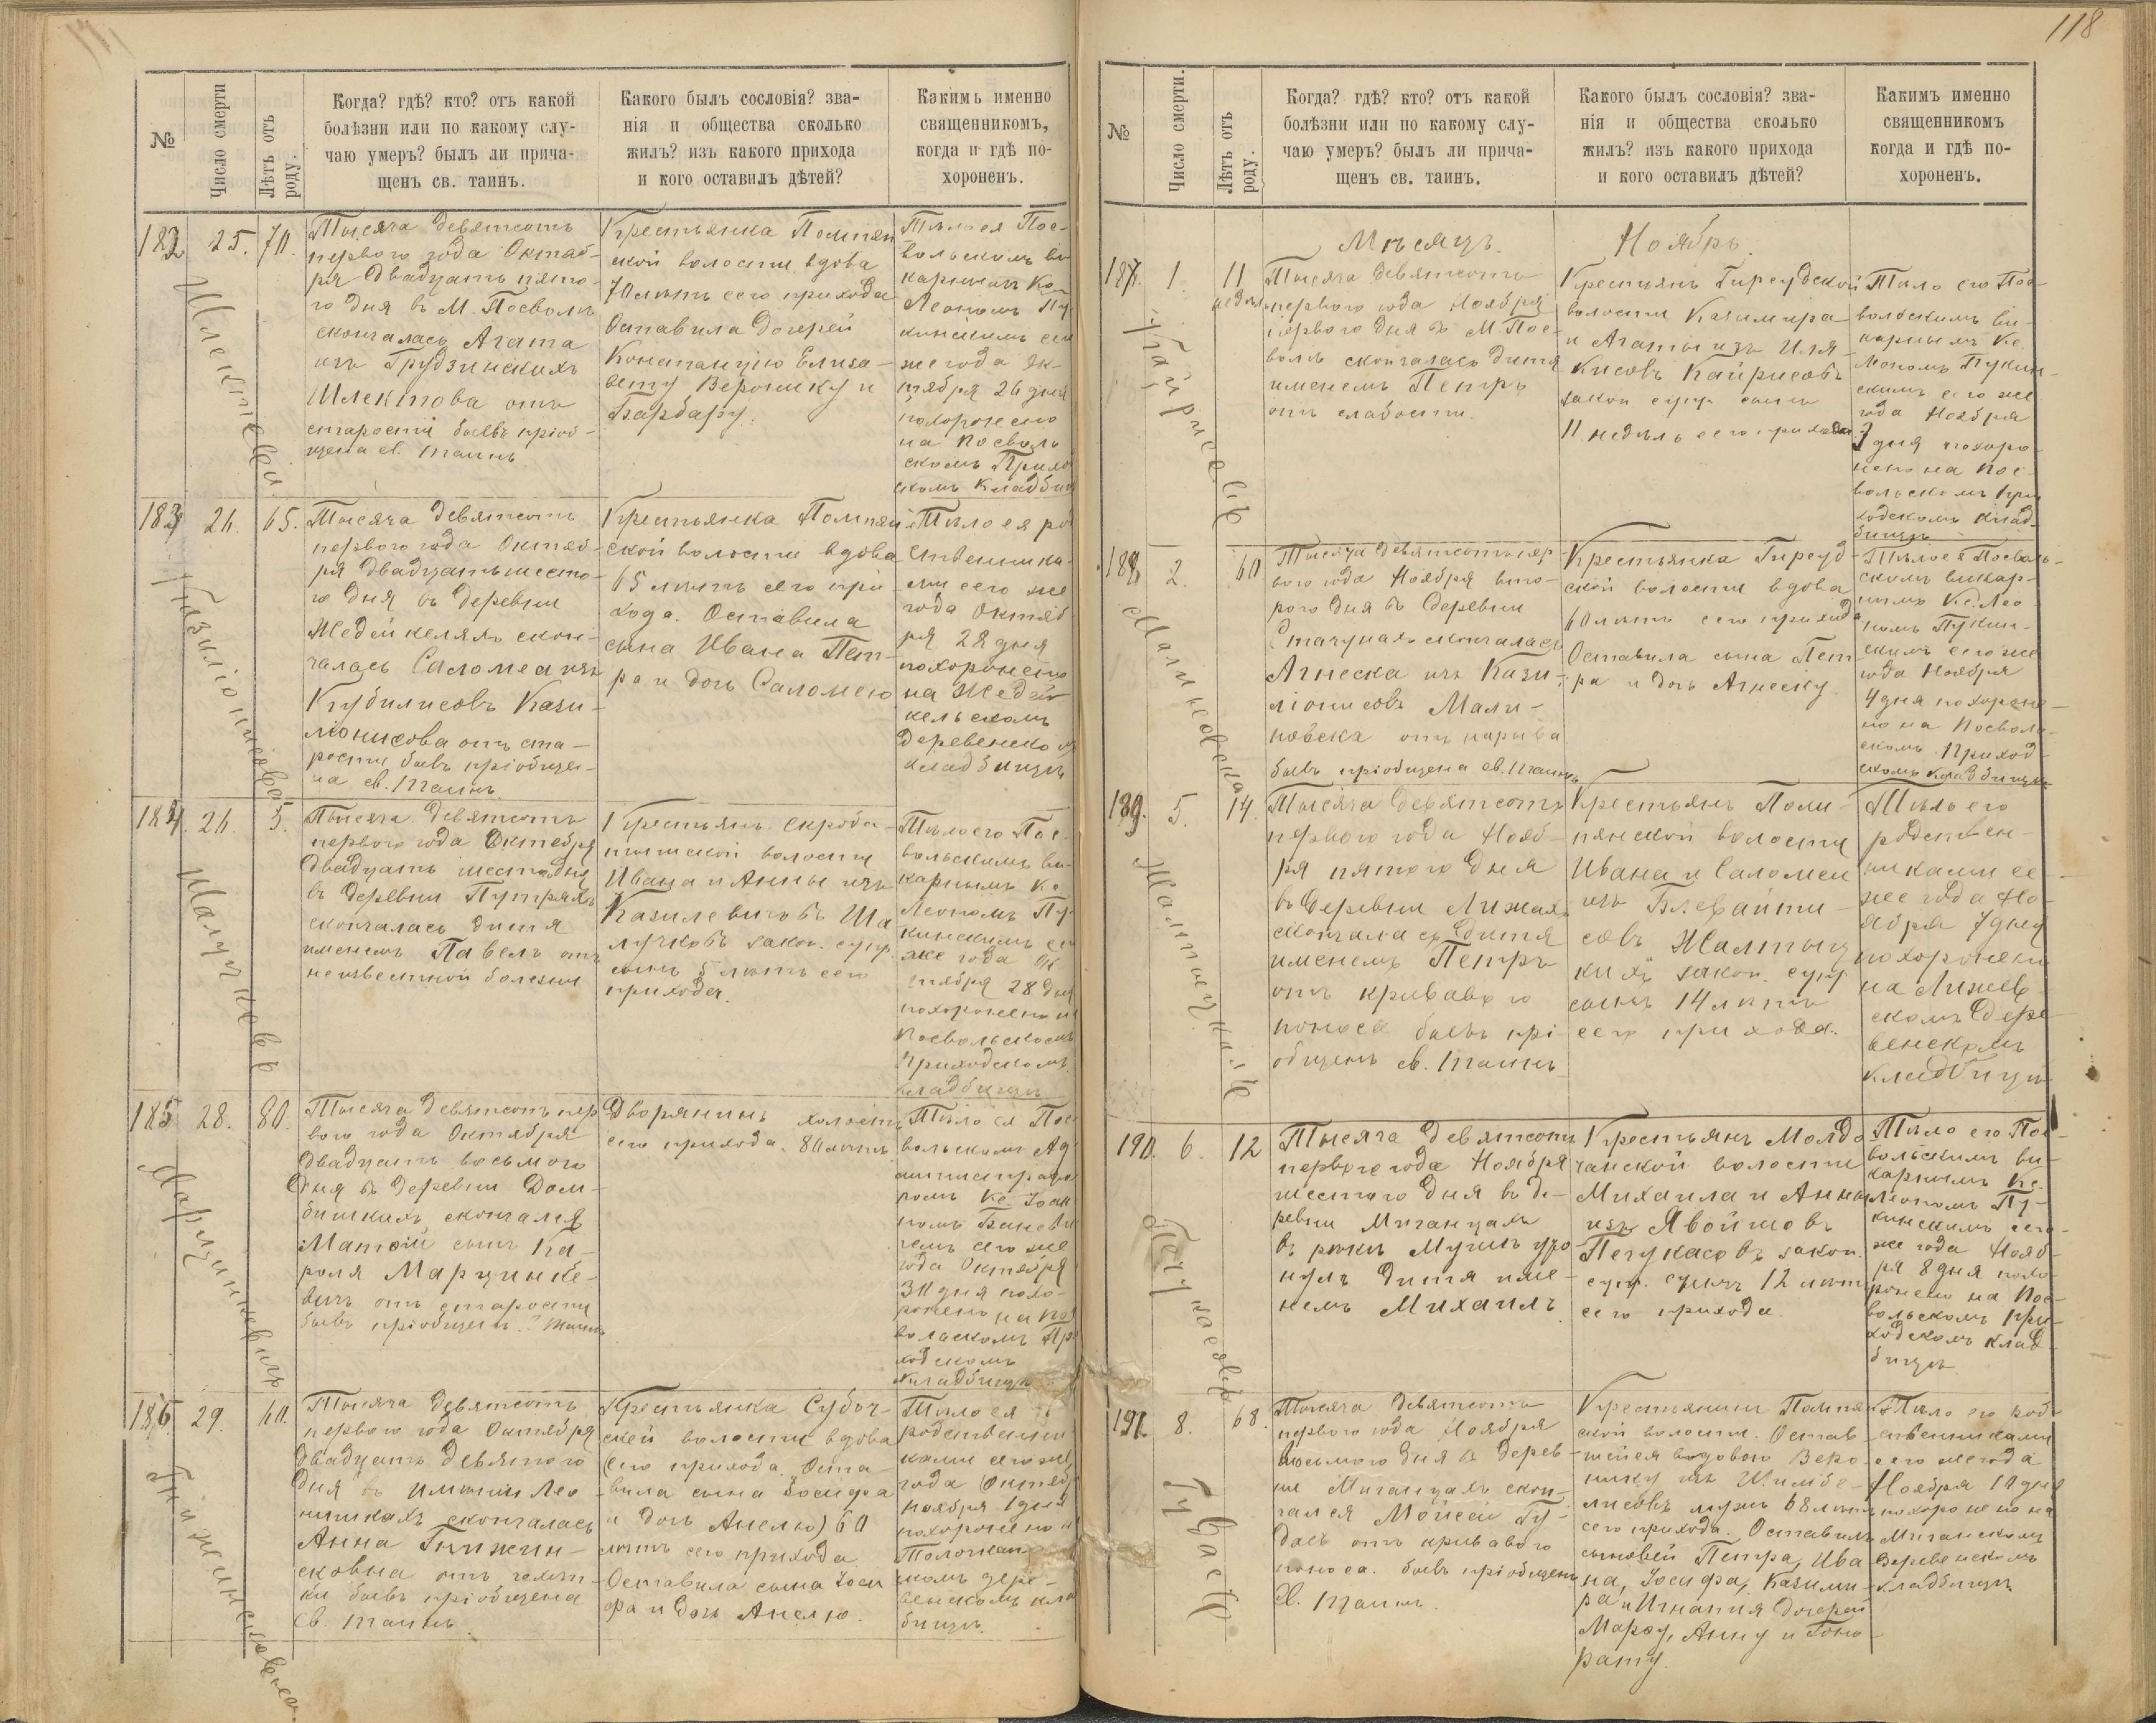 118
№
Число смерти
Лѣтъ отъ роду.
Когда? гдѣ? кто? отъ какой
болѣзни или по какому слу-
чаю умеръ? былъ ли прича-
щенъ св. таинъ.
Какого былъ сословія? зва-
нія и общества сколько
жилъ? изъ какого прихода
и кого оставилъ дѣтей?
Какимъ именно
священникомъ,
когда и гдѣ по-
хороненъ.
182
25.
70.
Тысяча девятсотъ
первого года Октяб-
ря двадцать пято-
го дня въ М. Посволѣ
скончалась Агата
изъ Грудзинскихъ
Шлектова отъ
старости бывъ пріоб-
щена св. таинъ
Крестьянка Помпян
ской волости вдова
70 лѣтъ сего прихода
Оставила дочерей
Констанцію Елиза-
вету Веронику и
Барбару.
Тѣло ея Пос-
вольскимъ ви
карнымъ Кс
Леономъ Пу
кинскимъ се
же года Ок-
тября 26 дня
похоронено
на Посволь
скомъ Прихо
скомъ Кладбищ
183
26.
65.
Тысяча девятсотъ
первого года Октяб-
ря двадцать шесто-
го дня въ деревни
Жедейкеляхъ скон-
чалась Саломеа изъ
Кубилисовъ Кази-
ліонисова отъ ста-
рости бывъ пріобще-
на св. таинъ
Крестьянка Помпян
ской волости вдова
65 лѣтъ сего при
хода. Оставила
сына Ивана Пет-
ра и дочь Саломею
Тѣло ея род
ственника-
ми сего же
года Октяб
ря 28 дня
похоронено
на Жедей
кельскомъ
деревенско
кладбищѣ
184.
26.
5.
Тысяча девятсотъ
первого года Октября
двадцать шесто дня
въ деревни Путряхъ
скончалась дитя
именемъ Павелъ отъ
неизвестной болезни
Крестьянъ Скроба-
тишской волости
Ивана и Анны изъ
Казилевичовъ Ша
лучковъ закон. супр.
сынъ 5 лѣтъ сего
прихода.
Тѣло его Пос-
вольскимъ ви-
карнымъ Кс
Леономъ Пу-
кинскимъ се
же года Ок
тября 28 дня
похоронено на
Посвольскомъ
Приходскомъ
кладбищѣ
185
28.
80.
Тысяча девятсотъ пер
вого года Октября
двадцать восьмого
дня въ деревни Дом-
бишкахъ скончался
Матѳій сынъ Ка-
роля Марцинке-
вичъ отъ старости
бывъ пріобщенъ таинъ
Дворянинъ холостъ
сего прихода. 80 лѣтъ
Тѣло ея Пос
вольскимъ Ад
министрато
ромъ Кс. Іоан
номъ Баневи
чемъ сего же
года Октября
30 дня похо-
роненъ на Пос
вольскомъ При
ходскомъ
Кладбищѣ
186
29.
60.
Тысяча девятсотъ
первого года Октября
двадцать девятого
дня въ имѣніи Лео
нишкахъ скончалась
Анна Гинжин-
сковна отъ чахот-
ки бывъ пріобщена
св. таинъ.
Крестьянка Субоч-
ской волости вдова
сего прихода. Оста-
вила сына Іосифа
и дочь Анелю) 60
лѣтъ сего прихода
Оставила сына Іоси
фа и дочь Анелю.
Тѣло ея
родственни
ками сего же
года
Ноября 1 дня
похоронено
дере-
венскомъ кла
бищѣ.
№
Число смерти.
Лѣтъ отъ роду.
Когда? гдѣ? кто? отъ какой
болѣзни или по какому слу-
чаю умеръ? былъ ли прича-
щенъ св. таинъ.
Какого былъ сословія? зва-
нія и общества сколько
жилъ? изъ какого прихода
и кого оставилъ дѣтей?
Какимъ именно
священникомъ
когда и гдѣ по-
хороненъ.
Мѣсяцъ Ноябрь
187.
1.
11
недѣль
Тысяча девятсотъ
первого года Ноября
первого дня въ М. Пос-
волѣ скончалась дитя
именемъ Петръ
отъ слабости.
Крестьянъ Гиреудской
волости Казимира
и Агаты изъ Иля-
кисовъ Кайрисовъ
закон супр сынъ
11 недѣль сего прихода
Тѣло его Пос-
вольскимъ ви-
карнымъ Кс.
Леономъ Пукин-
скимъ сего же
года Ноября
3 дня похоро
нено на Пос-
вольскомъ При
ходскомъ клад-
бищѣ
188.
2.
60
Тысяча девятсотъ пер
вого года Ноября вто-
рого дня въ деревни
Стачунахъ скончалась
Агнеска изъ Кази-
ліонисовъ Мали-
новска отъ нарыва
бывъ пріобщена св. таинъ
Крестьянка Гиреуд-
ской волости вдова
60 лѣтъ сего прихода
Оставила сына Пет
ра и дочь Агнеску.
Тѣло ея Посволь-
скимъ викар-
нымъ Кс. Лео
номъ Пукин-
скимъ сего же
года Ноября
4 дня похороне-
но на Посволь-
скомъ Приход-
скомъ кладбищѣ
189.
5.
14.
Тысяча девятсотъ
первого года Нояб-
ря пятого дня
въ деревни Лижая
скончалась дитя
именемъ Петръ
отъ кривавого
поноса бывъ прі-
общенъ св. таинъ
Крестьянъ Пом-
пянской волости
Ивана и Саломеи
изъ Блевайти-
совъ Жалтыц
кихъ закон. супр
сынъ 14 лѣтъ
сего прихода.
Тѣло его
родствен-
никами се
же года Но-
ября 7 дня
похоронено
на Лижев-
скомъ Дере-
венскомъ
кладбищѣ
190.
6.
12
Тысяча девятсотъ
первого года Ноября
шестого дня въ де-
ревни Миганцахъ
въ рѣки Мушѣ уто-
нулъ дитя име-
немъ Михаилъ
Крестьянъ Молдо
чанской волости
Михаила и Анны
изъ Явойшовъ
Печукасовъ закон.
супр. сынъ 12 лѣтъ
сего прихода.
Тѣло его Пос-
вольскимъ ви-
карнымъ Кс.
Леономъ Пу-
кинскимъ сего-
же года Нояб-
ря 8 дня похо-
ронено на Пос-
вольскомъ При-
ходскомъ клад-
бищѣ
191.
8.
68.
Тысяча девятсотъ
первого года Ноября
восьмого дня въ дерев-
ни Миганцахъ скон-
чался Мойсей Гу-
дасъ отъ кривавого
поноса. бывъ пріобщенъ
св. таинъ.
Крестьянинъ Помпян
ской волости. Остав-
шейся вдовою Веро-
нику изъ Шимбе-
лисовъ мужъ 68 лѣтъ
сего прихода. Оставилъ
сыновей Петра, Ива
на, Іосифа, Казими-
ра и Игнатія дочерей
Марту, Анну и Гоно-
рату.
Тѣло его род-
ственниками
сего же года
Ноября 10 дня
похоронено на
Миганскомъ
деревенскомъ
кладбищѣ
Шлектова.
Казиліонисова
Шалучковъ
Марцинкевичъ
Гинжинсковна.
Кайрисовъ
Малиновска
Жалтыцкихъ
Печукасовъ
Гудасъ